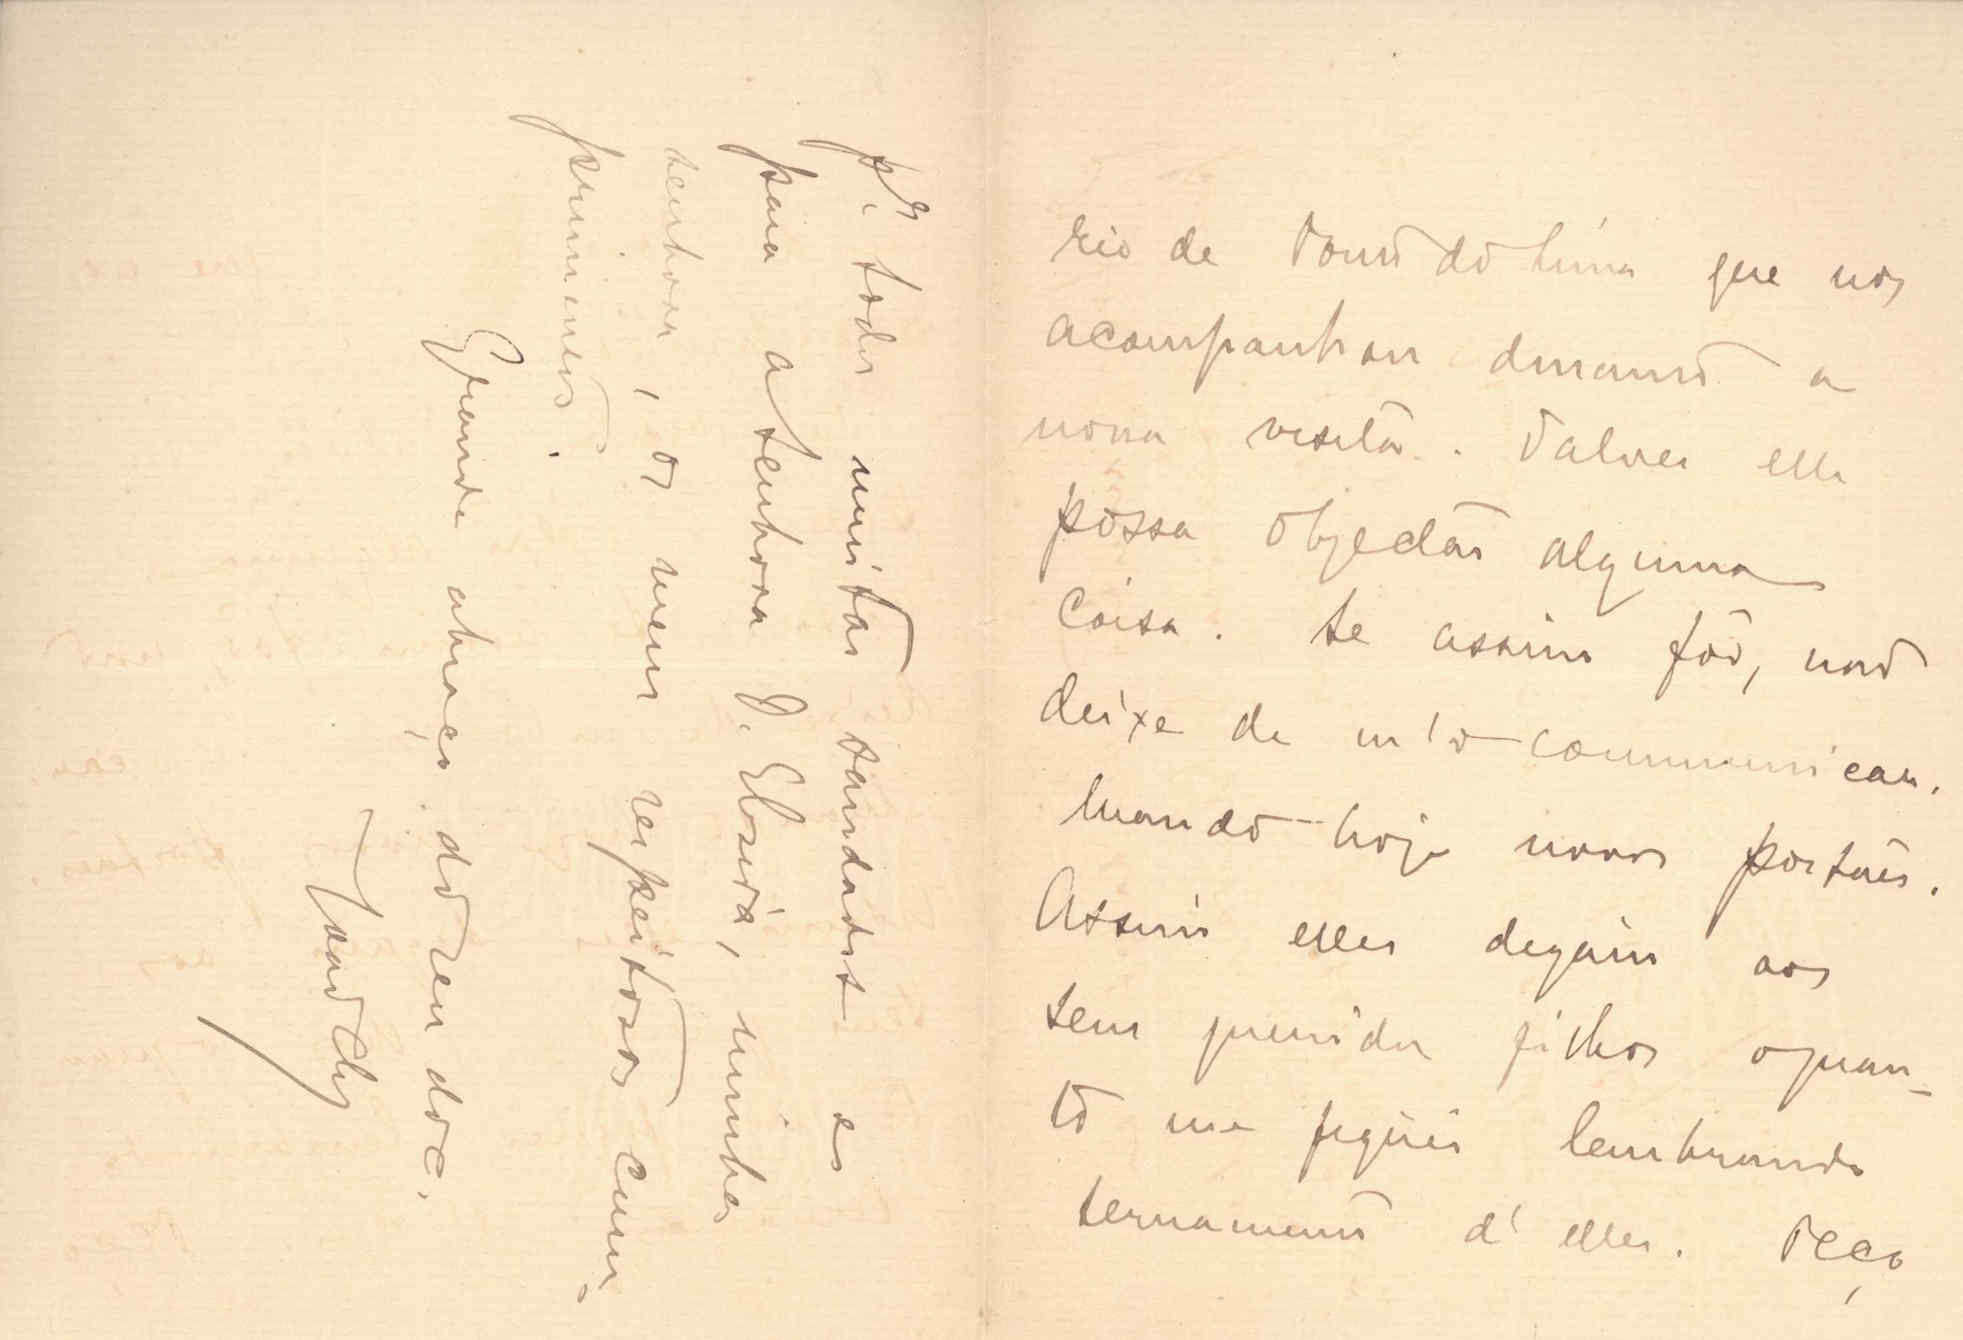 rio de Ponte do Lima que nos
acompanhou durante a
nossa visita. Talvez elle
possa objectar alguma
coisa. Se assim fôr, não
deixe de m'o communicar.
Mando hoje novos postaes.
Assim elles digam aos
seus queridos filhos o quan-
to me fiquei lembrando
ternamente d'elles. Peço
pª. todos muitas saudades e
para a senhora D. Elosia, minha
senhora, os meus respeitosos cum-
primentos.
Grande abraço do seu do c.
João Ch